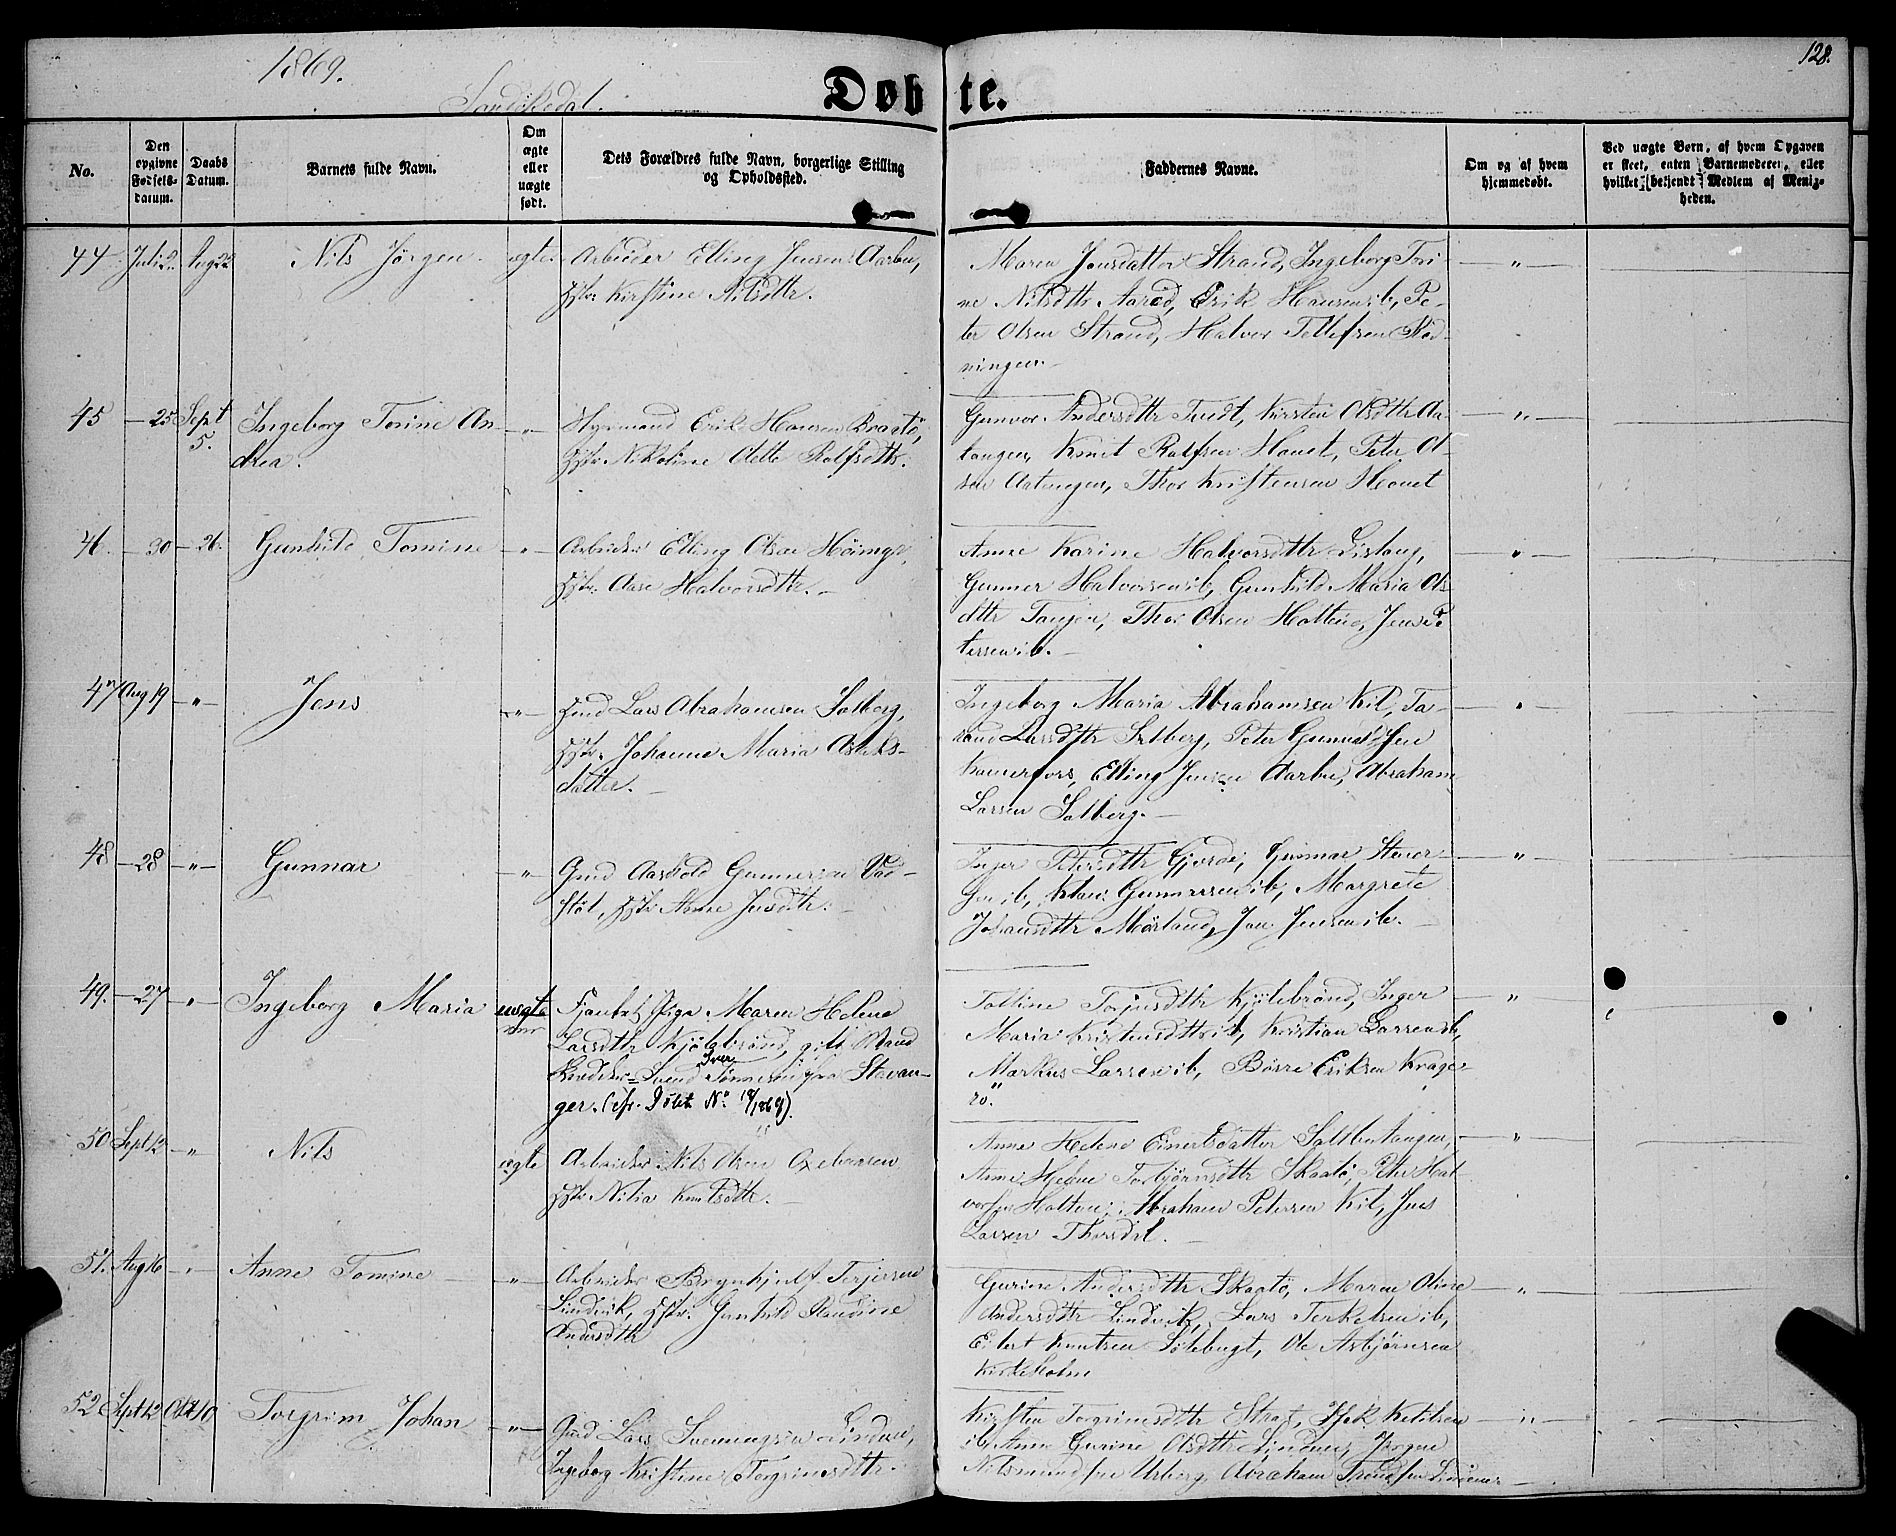 1869.
128.
Sandøkedal.
Døbte.
No.
Den opgivne Fødselsdatum.
Daabs Datum.
Barnets fulde Navn.
Om ægte eller uægte født.
Dets Forældres fulde Navn, borgerlige Stilling og Opholdssted.
Faddernes Navne.
Om og af hvem hjemmedøbt.
Ved uægte Børn, af hvem Opgaven er skeet, enten Barnemoderen, eller hvilket bekjendt Medlem af Menigheden.
44 Juli 2 Aug 22 Nils Jørgen ægte Arbeider Elling Jensen Aarbu,
Hstr. Kirstine Nilsdtr.
Maren Jensdatter Strand, Ingeborg Tomi-
ne Nilsdtr Aarød, Erik Hansen ib, Pe-
ter Olsen Strand, Halvor Tellefsen Rød-
ningen.
45 – 25 Sept 5. Ingeborg Tomine An- –"–
drea.
Styrmand Erik Hansen Kragerø,
Hstr. Nikoline Olette Rolfsdtr.
Gunvor Andersdtr Tvedt, Kirsten Olsdtr Aa-
tangen, Knut Rolfsen Hovet, Peter Ol-
sen Aatangen, Thor Kristensen Hovet
46. – 30 – 26. Gunhild Tomine –"– Arbeider Elling Olsen Høimyr,
Hstr. Aase Halvorsdtr.
Anne Karine Halvorsdtr Listaug,
Gunner Halvorsen ib, Gunhild Maria Ols-
dtr Tangen, Thor Olsen Holtene, Jens Pe-
tersen ib.
47 Aug 19 –"– Jens –"– Gmd Lars Abrahamsen Solberg,
Hstr. Johanne Maria Aslaks-
datter.
Ingeborg Maria Abrahamsen Kil, Ta-
rand Larsdtr Solberg, Peter Gunvaldsen
Kammerfoss, Elling Jensen Aarbu, Abraham
Larsen Solberg.
48 – 28 –"– Gunnar –"– Gmd Aasold Gunnersen Vad-
føl, Hstr Anne Jensdtr.
Inger Petersdtr Gjerde, Gunnar Stener-
sen ib, Klaus Gunnersen ib, Margrete
Johansdtr Mørland, Jon Jensen ib.
49. – 27 –"– Ingeborg Maria uægte Fjantet Pige Maren Helene
Larsdtr Kjølebrønd, gift Mand
Svend Iver Tønnesen fra Stavan-
ger. (cfr. Døbt No 19/1869).
Tolline Torjusdtr Kjølebrønd, Inger
Maria Kristensdtr ib, Kristian Larsen ib,
Markus Larsen ib, Børre Eriksen Krage-
rø.
50 Sept 12 –"– Nils ægte Arbeider Nils Olsen Oxebaasen
Hstr Nilia Knutsdtr.
Anne Helene Einertsdatter Saltbutangen,
Anne Helene Torbjørnsdtr Skaatø, Peter Hal-
vorsen Holtene, Abraham Petersen Kil, Jens
Larsen Thorsdal.
51. Aug 16 –"– Anne Tomine –"– Arbeider Brynhjulf Terjersen
Lindvik, Hstr. Gunhild Claudine
Andersdtr
Gurine Andersdtr Skaatø, Maren Oline
Andersdtr Lindvik, Lars Terkelsen ib,
Eilert Knutsen Følebugt, Ole Asbjørnsen
Kirkeholm
52 Sept 12 Okt 10 Torgrim Johan –"– Gmd Lars Svenningsen Lindeem,
Ingeborg Kristine Torgrimsdtr.
Kirsten Torgrimsdtr Straat, Isak Ketilsen
ib, Anne Gurine Olsdtr Lindem, Jørgen
Nilsmundsen Urberg, Abraham Trondsen Lindem